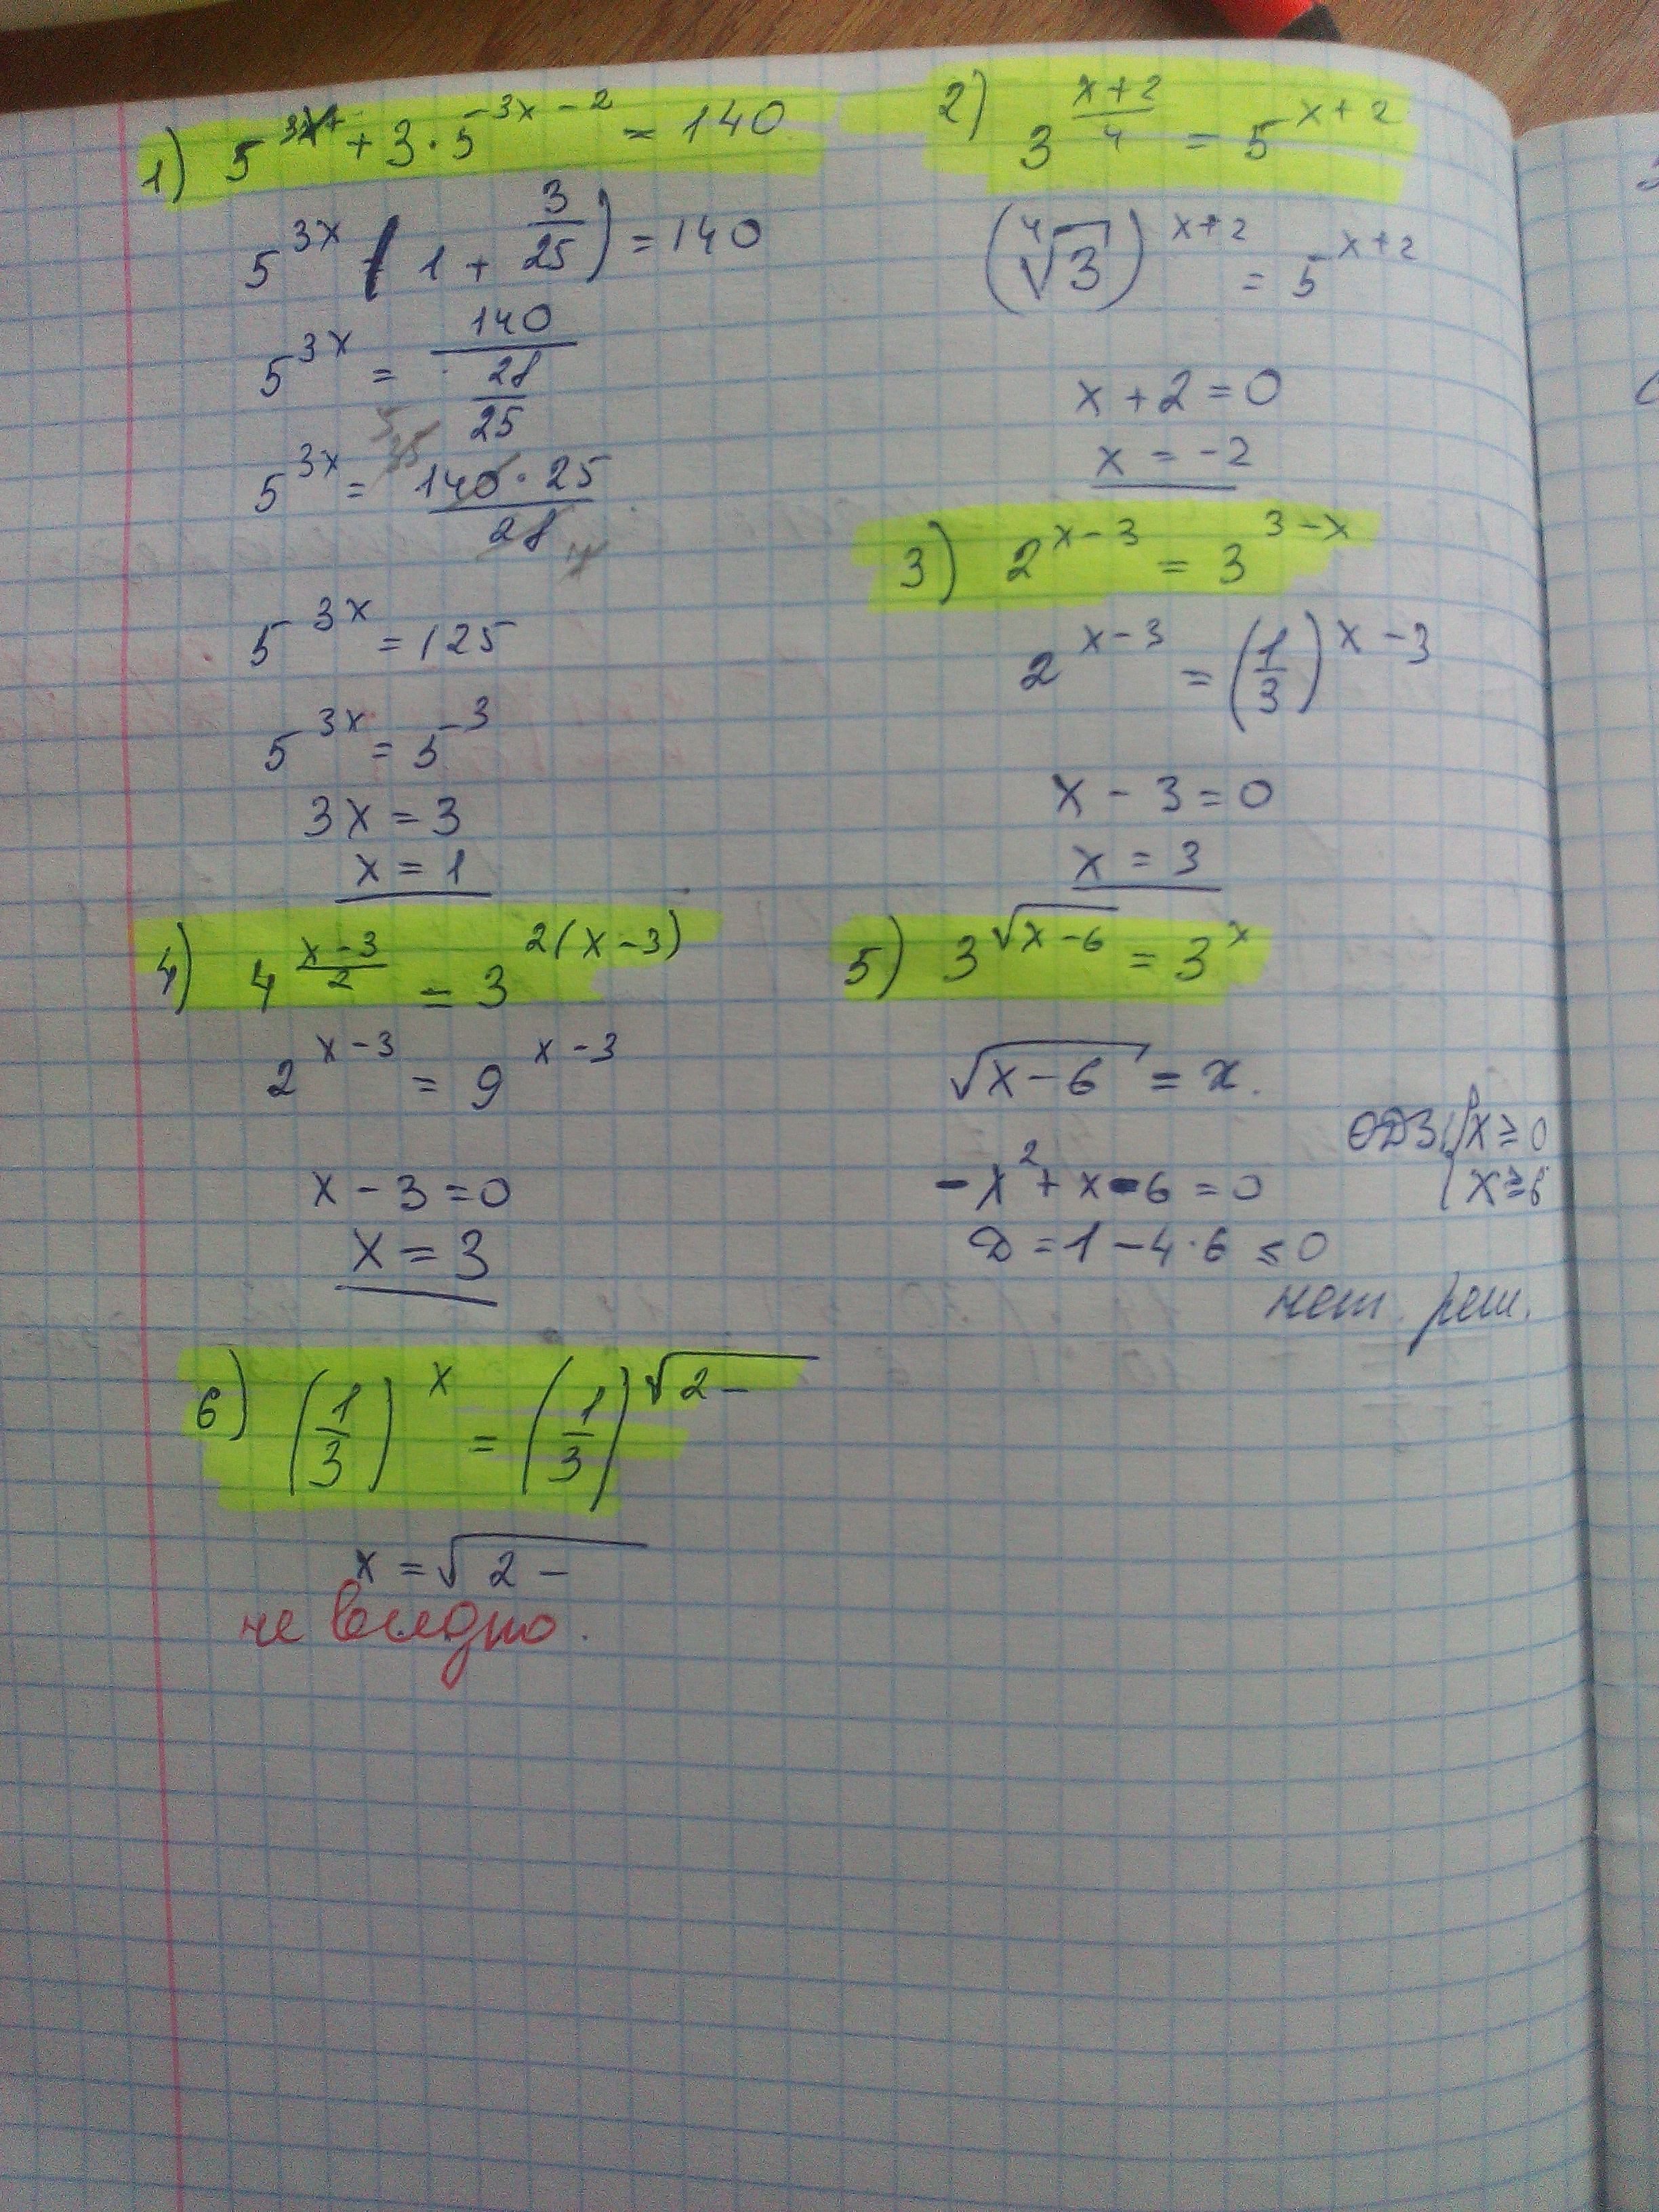 1) 5^{3x} + 3·5^{-3x-2} = 140
5^{3x} (1 + 3/25) = 140
5^{3x} = 140/(28/25)
5^{3x} = 140·25/28
5^{3x} = 125
5^{3x} = 5^3
3x = 3
x = 1
2) 3^{(x+2)/4} = 5^{x+2}
(⁴√3)^{x+2} = 5^{x+2}
x + 2 = 0
x = -2
3) 2^{x-3} = 3^{3-x}
2^{x-3} = (1/3)^{x-3}
x - 3 = 0
x = 3
4) 4^{(x-3)/2} = 3^{2(x-3)}
2^{x-3} = 9^{x-3}
x - 3 = 0
x = 3
5) 3^{√(x-6)} = 3^x
√(x-6) = x.
ОДЗ: { x ≥ 0
x ≥ 6
-x² + x - 6 = 0
D = 1 - 4·6 ≤ 0
нет. реш.
6) (1/3)^x = (1/3)^{√(2 -
x = √(2 -
не видно.